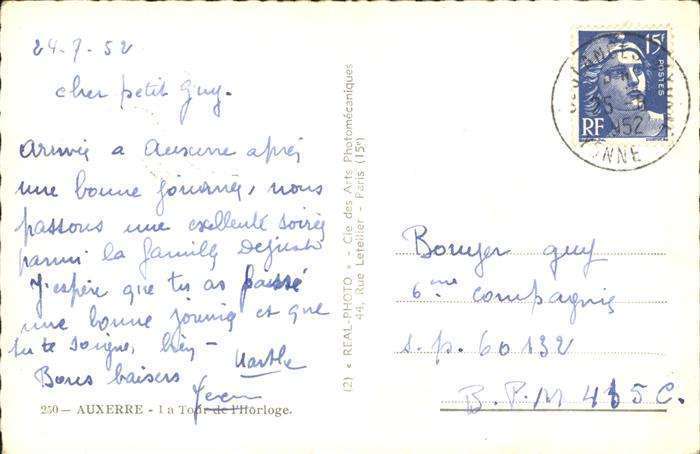 24-7-52
cher petit Guy.
Arrivés a Auxerre après
une bonne journée, nous
passons une excellente soirée
parmi la famille Dejusto
J'espère que tu as passé
une bonne journée et que
tu te soigne, bien -
Marthe
Bons baisers
250 — AUXERRE - La Tour de l'Horloge.
(2) « REAL-PHOTO » - Cie des Arts Photomécaniques
44, Rue Letellier - Paris (15e)
15F
POSTES
RF
25
1952
YONNE
Bouyer guy
6ème compagnie
s.p. 60132
B.P.M 415C.